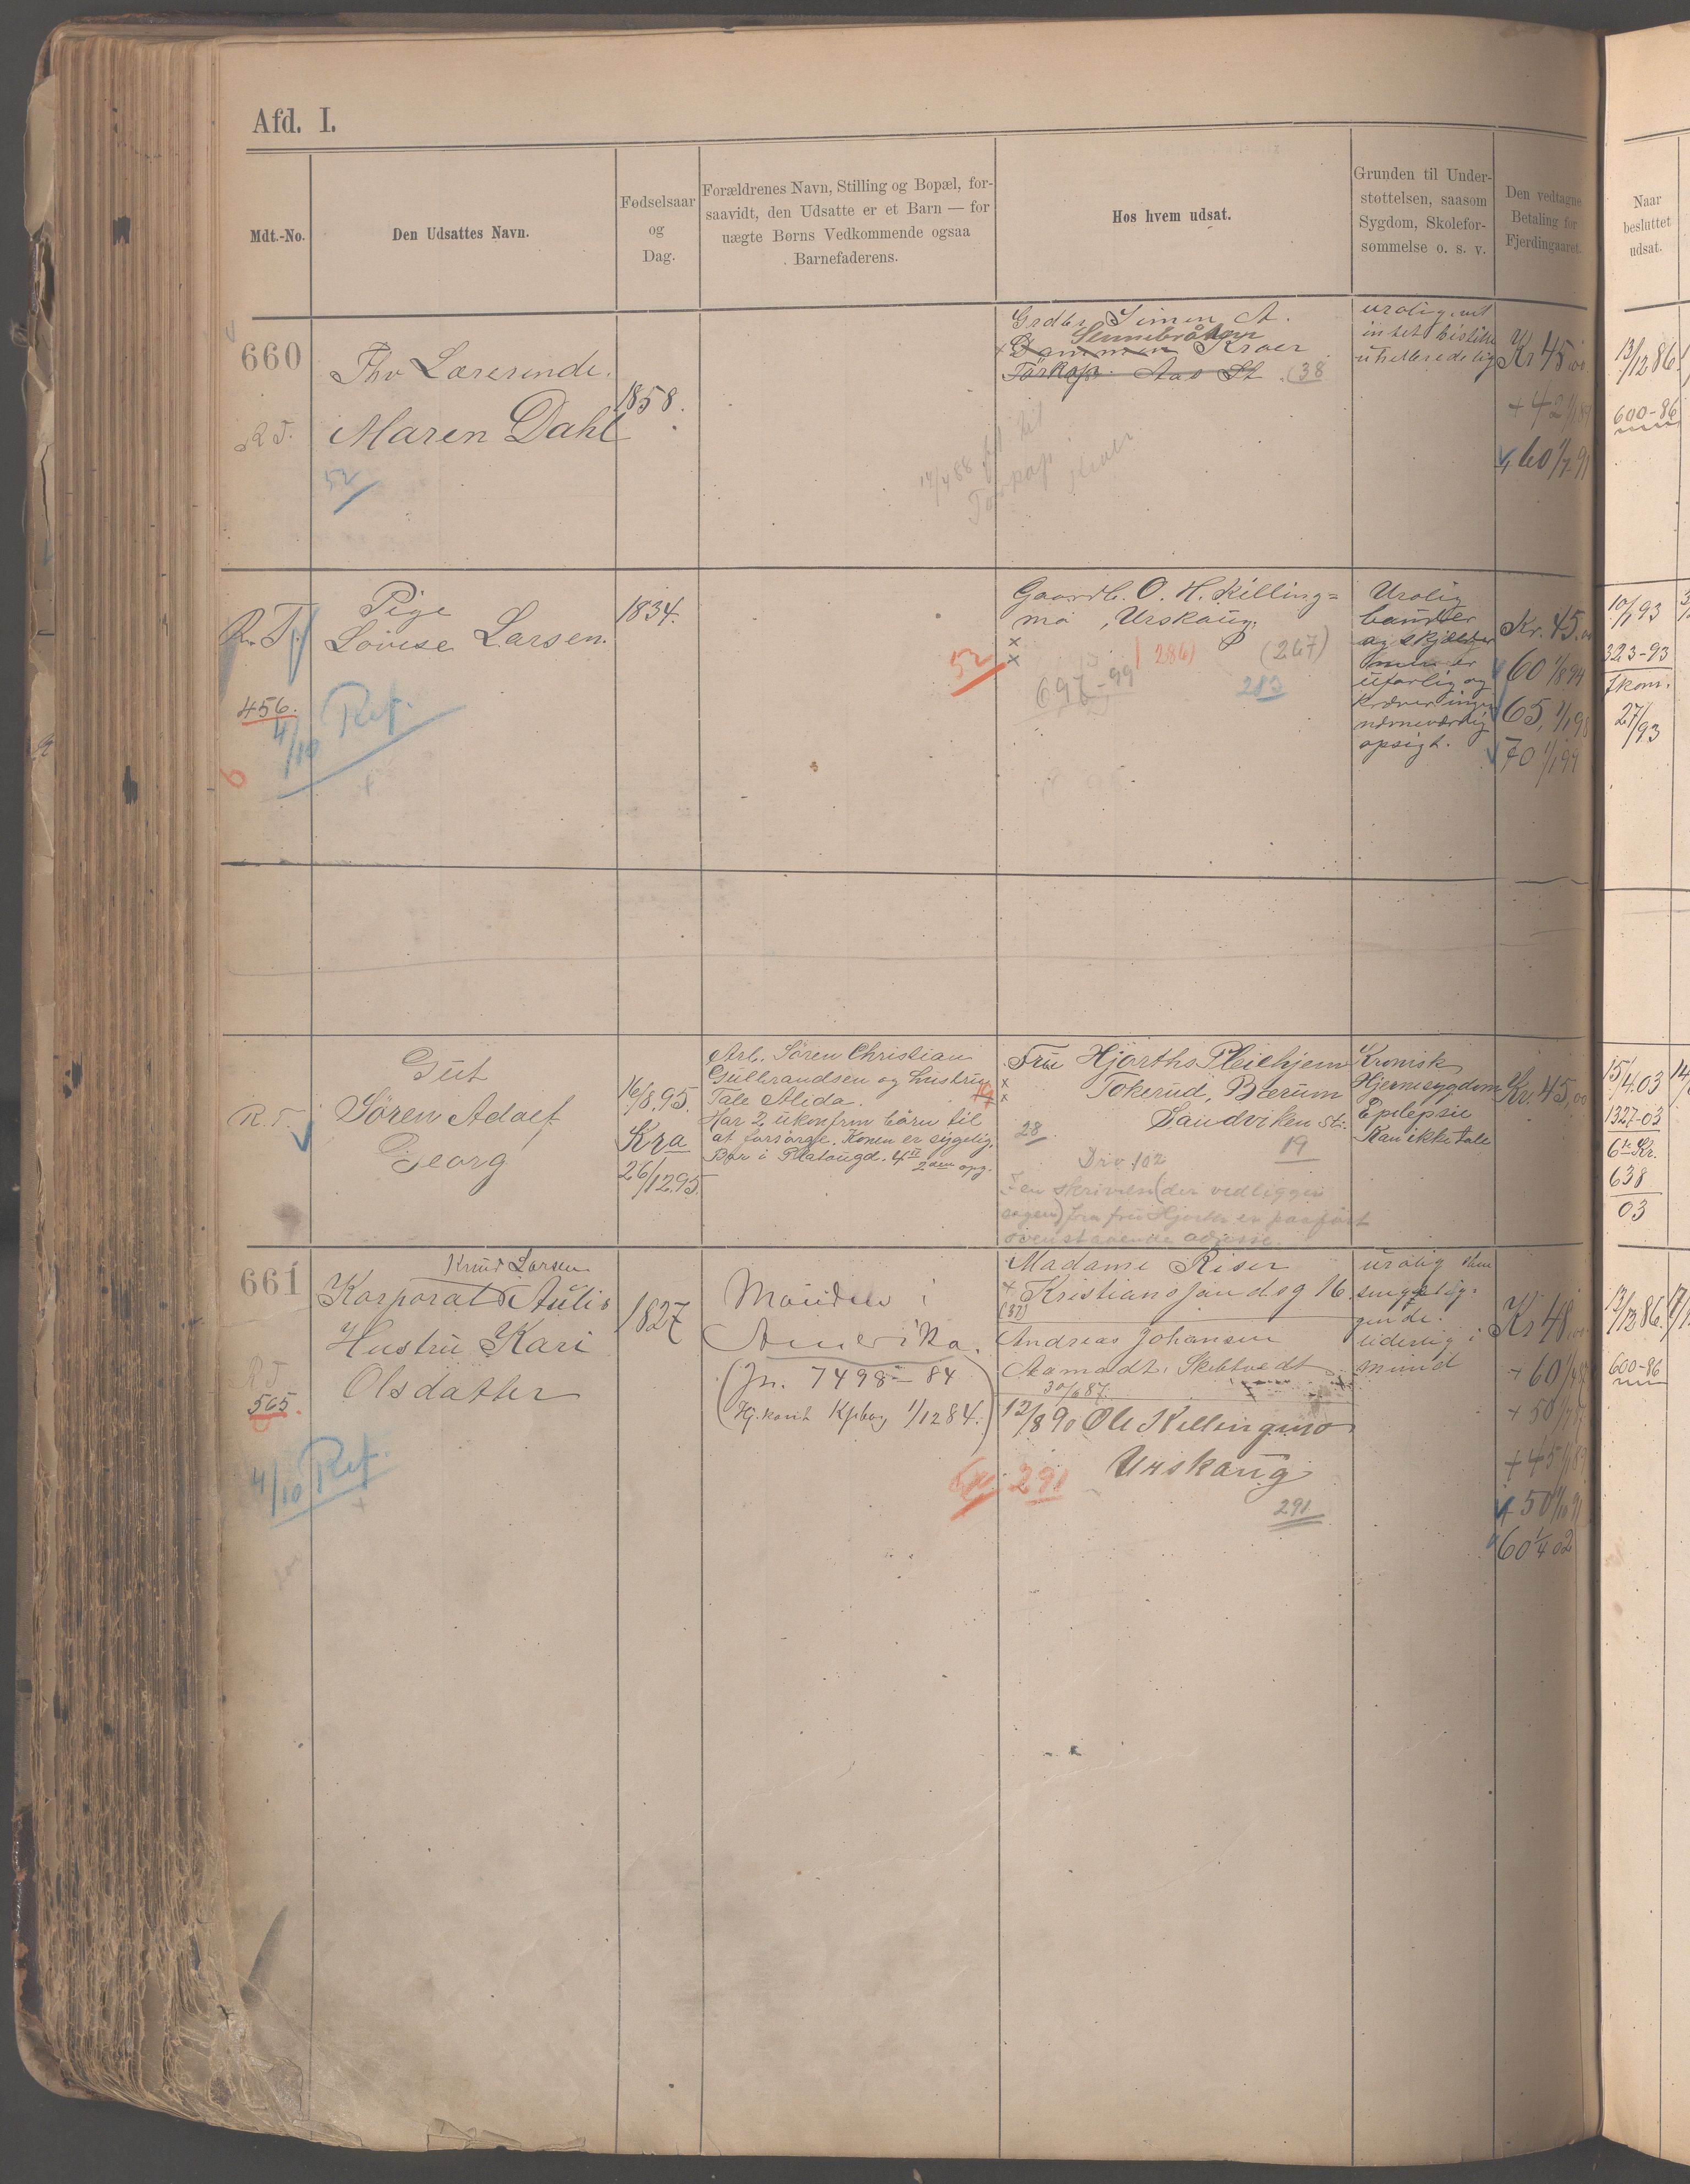 Afd. I.
Mdt.-No.
Den Udsattes Navn.
Fødselsaar
og
Dag.
Forældrenes Navn, Stilling og Bopæl, for-
saavidt, den Udsatte er et Barn — for
uægte Børns Vedkommende ogsaa
Barnefaderens.
Hos hvem udsat.
Grunden til Under-
støttelsen, saasom
Sygdom, Skolefor-
sømmelse o. s. v.
Den vedtagne
Betaling for
Fjerdingaaret.
Naar
besluttet
udsat.
660
R T.
Fhv Lærerinde.
Maren Dahl
52
1858.
Grdbr. Simen A.
Sennebråten
Kroer
Tørkop. Aas St. (38
14/4 88
Tørkop
urolig, vil
intet bistille
uhelbredelig
Kr 45,00
+ 42 1/1 89
+ 60 1/7 91
13/12 86
600-86
R. T.
456.
4/10 Ref.
Pige
Lovise Larsen.
1834.
52
Gaardb. O. H. Killing=
mo, Urskoug.
286)
(267)
697-99
283
Urolig
bander
og skjælder
men er
ufarlig og
kræver ingen
nævneværdig
opsigt.
Kr. 45,00
60 1/8 94
65, 1/1 98
70 1/1 99
10/1 93
323-93
fkom.
27/93
R. T.
Gut
Sören Adolf
Georg
16/8 95.
Kra
26/12 95.
Arb. Sören Christian
Gulbrandsen og hustru
Tale Alida.
Har 2 ukonfirm börn til
at forsörge. Konen er sygelig.
Bor i Platougd. 4 II
2den opg.
Frue Hjorths Pleiehjem
Tokerud, Bærum
Sandviken St.
28
19
Drv. 102
I en skrivelse (der vedligger
sagen) fra fru Hjorth er paaført
ovenstaaende adresse.
Kronisk
Hjernesygdom
Epilepsie
Kan ikke tale
Kr. 45,00
15/4.03
1327-03
6te Kr.
638
03
661
R T
565.
4/10 Ref.
Knud Larsen
Korporal Aulis
Hustru Kari
Olsdatter
1827
Manden i
Amerika.
(Jn. 7498 - 84
Hj.komt Kpbog 1/12 84.)
Madame Riser
Kristiansjands g 16.
(37)
Andreas Johansen
Aamodt, Skibtvedt
30/6 87.
12/8 90 Ole Killingmo
Urskoug
291
291
urolig
liderlig i
mund
Kr 48,00
+ 60
+ 50
+ 45 1/1 89
+ 50 1/10 91
60 1/4 02
13/12 86.
600-86